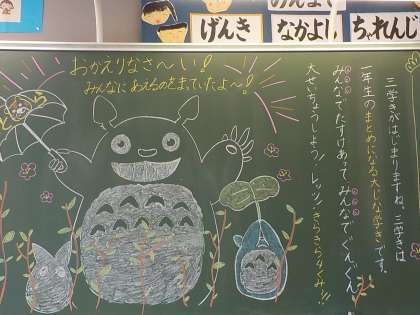 げんき
なかよし
ちゃれんじ
おかえりなさ〜い！
みんなに あえるのをまっていたよ〜！
三学きがはじまりますね。三学きは
一年生のまとめになる大じな学きです。
みんなでたすけあって、みんなでぐんぐん
大せいちょうしよう！レッツ！きらきら4くみ!!